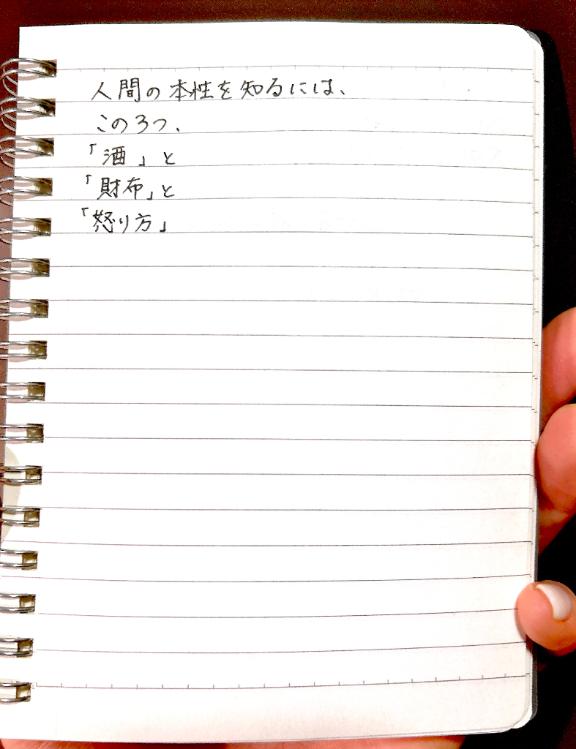 人間の本性を知るには、
この3つ、
「酒」と
「財布」と
「怒り方」